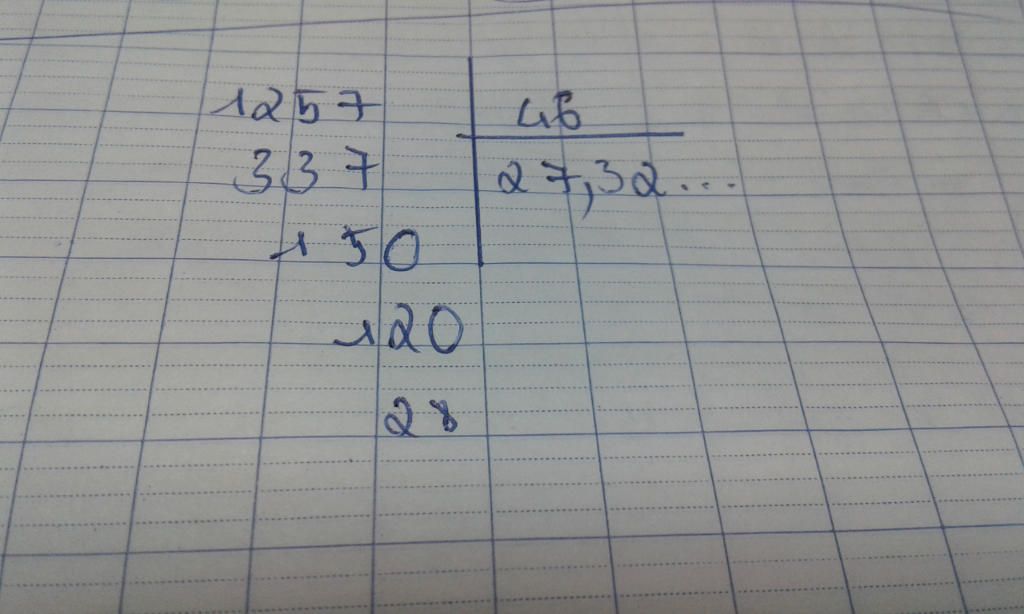 1257 46
337 27,32...
150
120
28